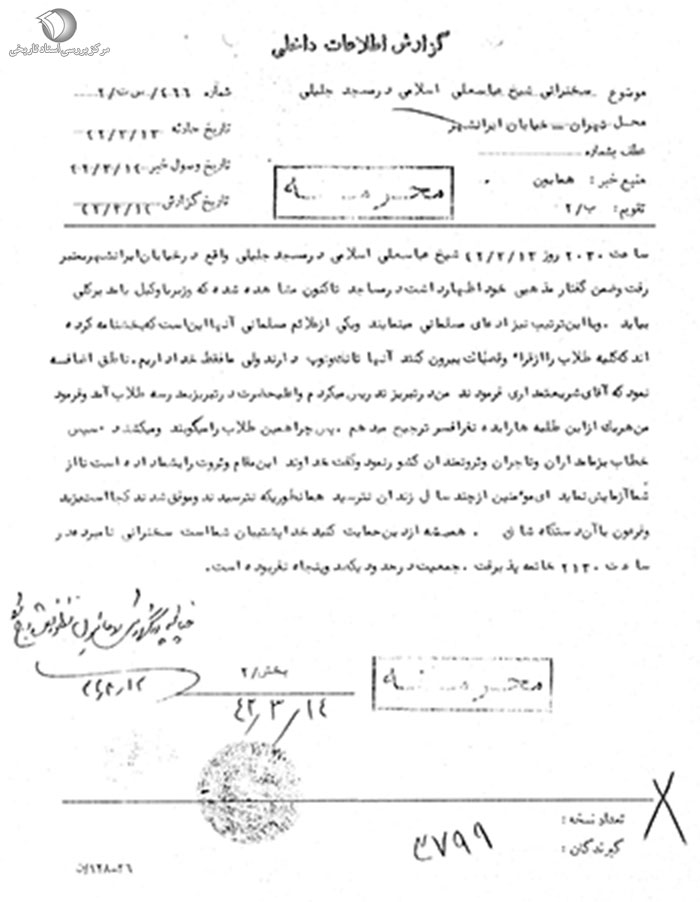 مرکز بررسی اسناد تاریخی
گزارش اطلاعات داخلی
موضوع سخنرانی شیخ عباسعلی اسلامی در مسجد جلیلی
شماره ۴۶۶/س ت/۲
محل تهران – خیابان ایرانشهر
تاریخ حادثه ۴۲/۳/۱۳
عطف بشماره
تاریخ وصول خبر ۴۲/۳/۱۴
منبع خبر : همایون
محرمانه
تقویم : ب/۲
تاریخ گزارش ۴۲/۳/۱۴
ساعت ۲۰۳۰ روز ۴۲/۳/۱۳ شیخ عباسعلی اسلامی در مسجد جلیلی واقع در خیابان ایرانشهر بمنبر
رفت وضمن گفتار مذهبی خود اظهار داشت در مساجد تاکنون مشاهده شده که وزیر یا وکیل یا مدیرکلی
بیاید . وبا این ترتیب نیز ادعای مسلمانی مینمایند ویکی از علائم مسلمانی آنها این است که بخشنامه کرده
اند که کلیه طلاب را از قراء وقصبات بیرون کنند آنها تانک وتوپ دارند ولی ما فقط خدا داریم . ناطق اضافه
نمود که آقای شریعتمداری فرمودند من در تبریز تدریس میکردم واعلیحضرت در تبریز بمدرسه طلاب آمد وفرمود
من هریک از این طلبه ها را بده نفر افسر ترجیح میدهم . پس چرا همین طلاب را میکوبند ومیکشند . سپس
خطاب بزمامداران وتاجران وثروتمندان کشور نمود وگفت خداوند این مقام وثروت را بشما داده است تا از
شما آزمایش نماید ای مومنین از چند سال زندان نترسید همانطوریکه نترسیدند وموفق شدند کجا است یزید
وفرعون با آن دستگاه شان . همیشه از دین حمایت کنید خدا پشتیبان شما است سخنرانی نامبرده در
ساعت ۲۱۳۰ خاتمه پذیرفت . جمعیت در حدود یکصد وپنجاه نفر بوده است .
بخش/۲
محرمانه
۴۲/۳/۱۴
تعداد نسخه :
گیرندگان :
۳۷۹۹